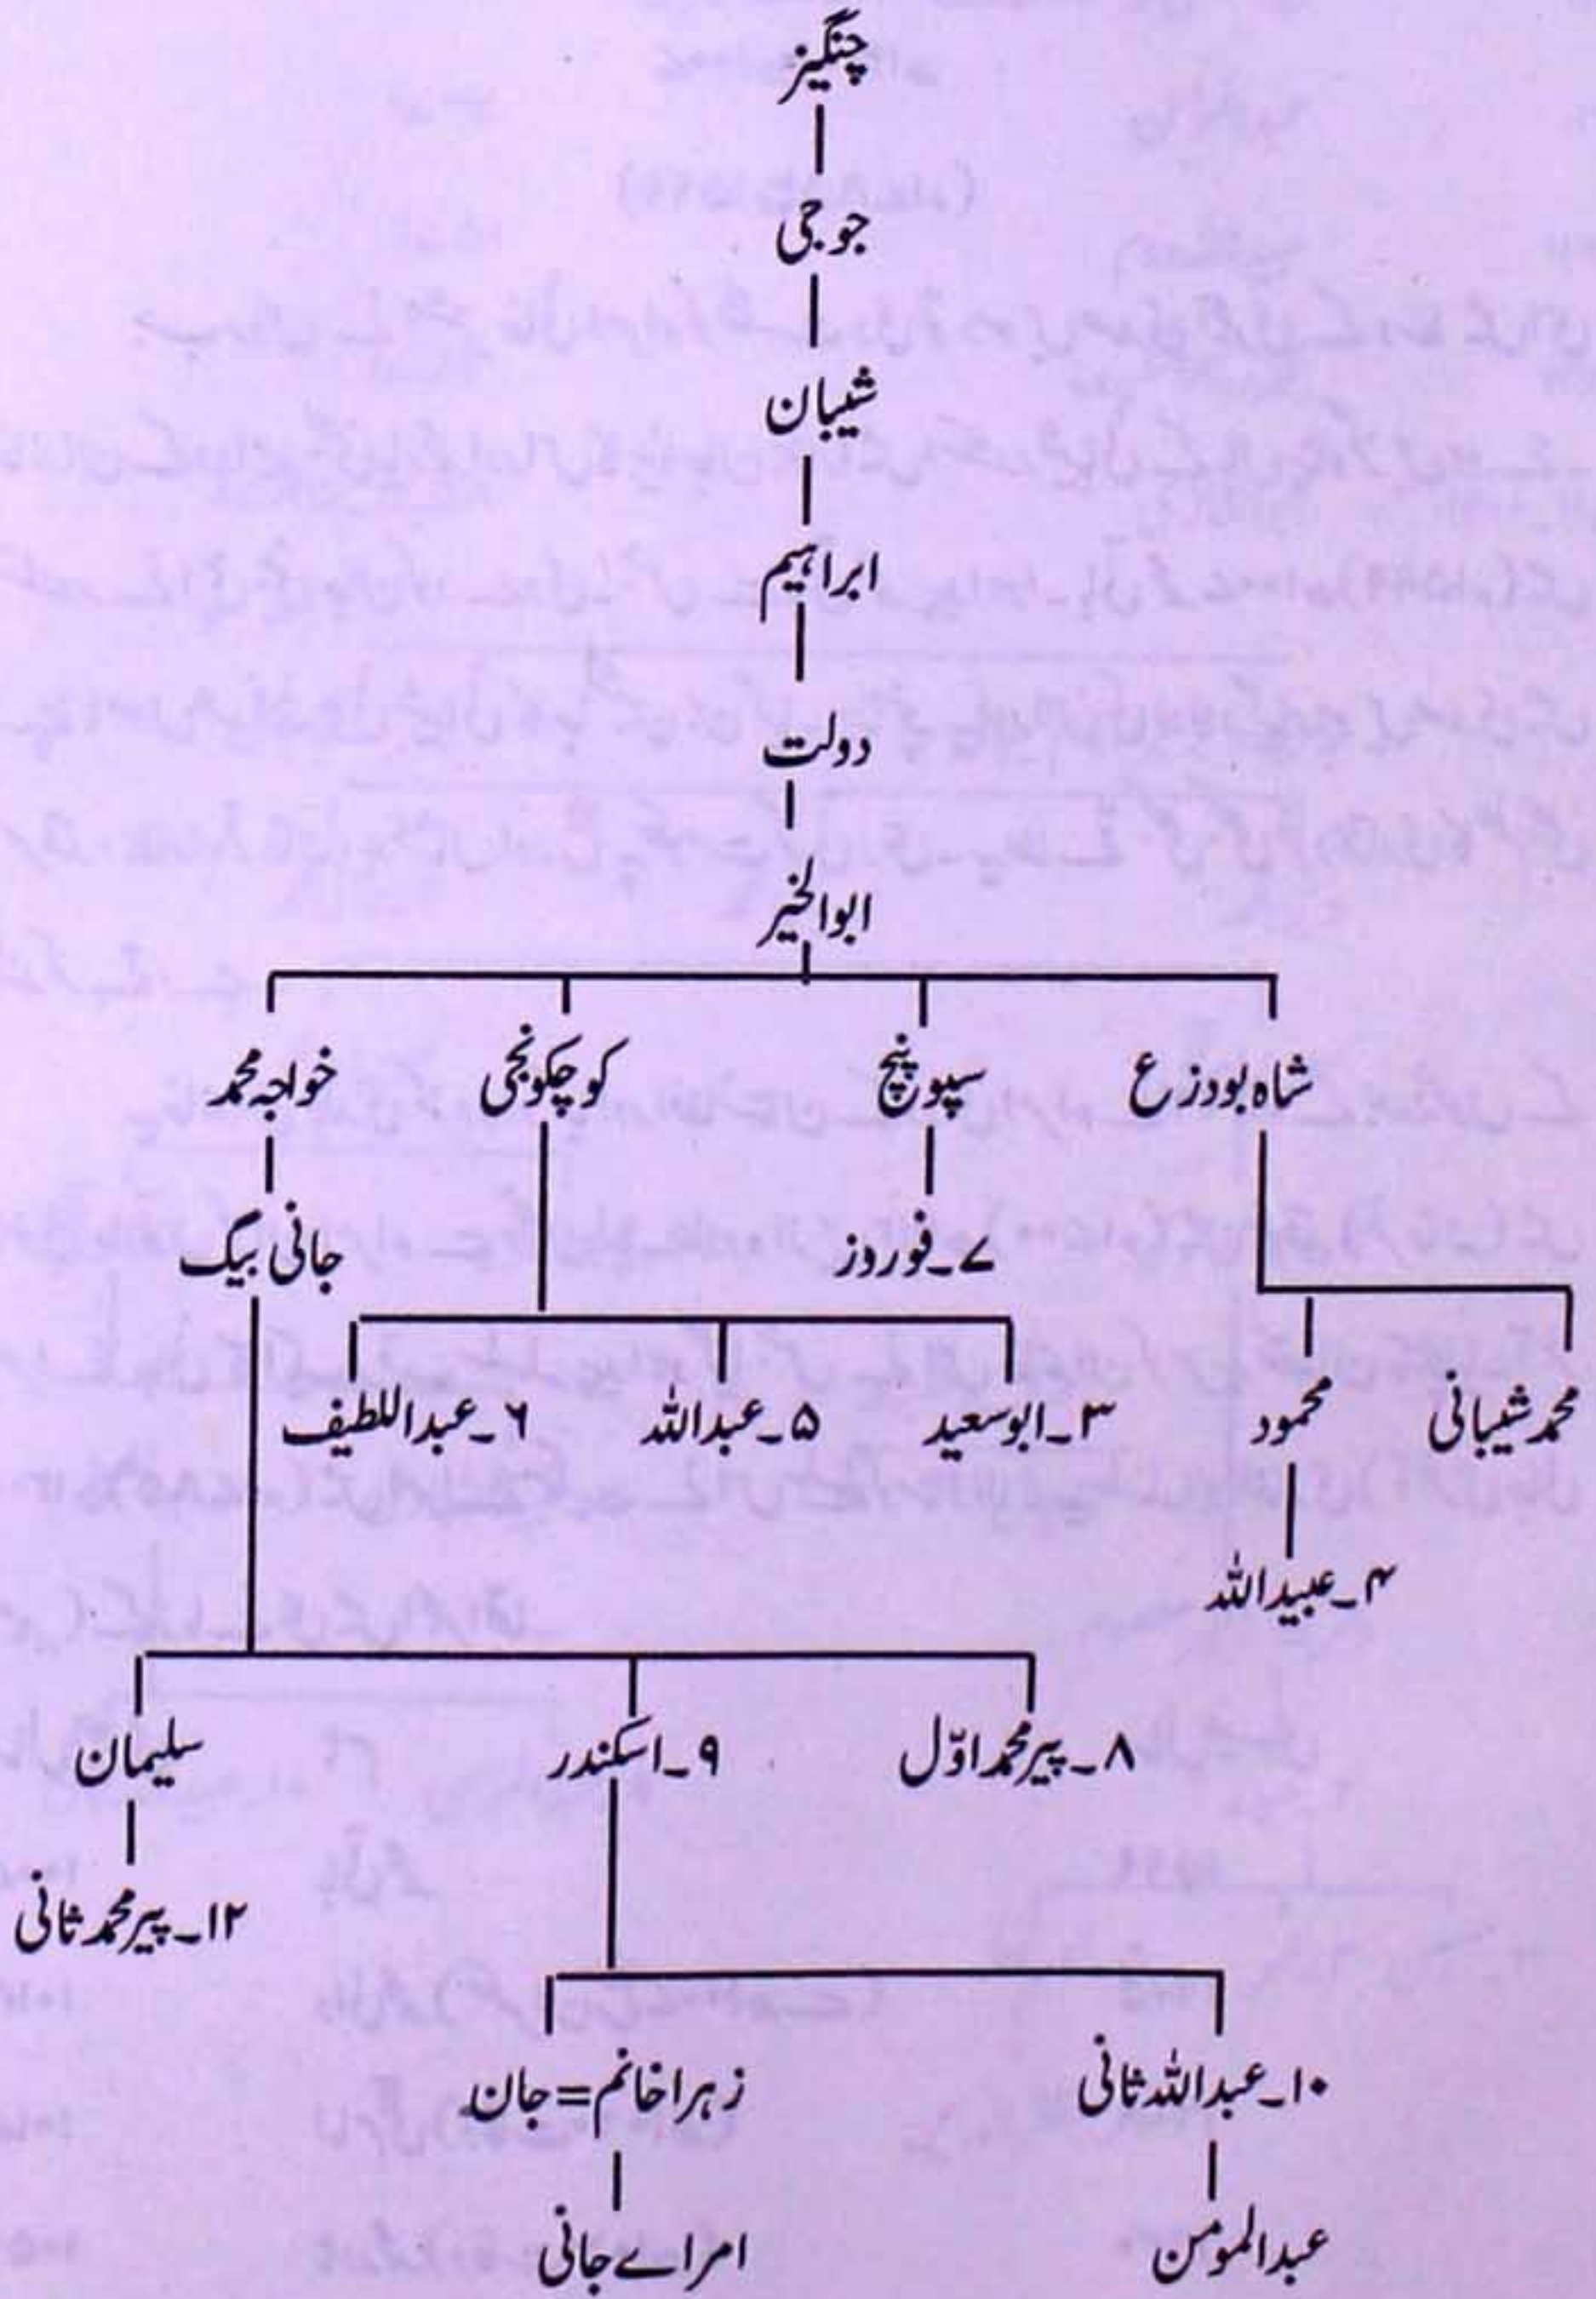 چنگیز
جوجی
شیبان
ابراہیم
دولت
ابوالخیر
شاہ بودزع
سپونچ
کوچکونجی
خواجہ محمد
۷۔فوروز
جانی بیگ
محمد شیبانی
محمود
۳۔ابوسعید
۵۔عبداللہ
۶۔عبداللطیف
۴۔عبیداللہ
۸۔پیرمحمد اوّل
۹۔اسکندر
سلیمان
۱۲۔پیرمحمد ثانی
۱۰۔عبداللہ ثانی
زہرا خانم=جان
عبدالمومن
امراے جانی